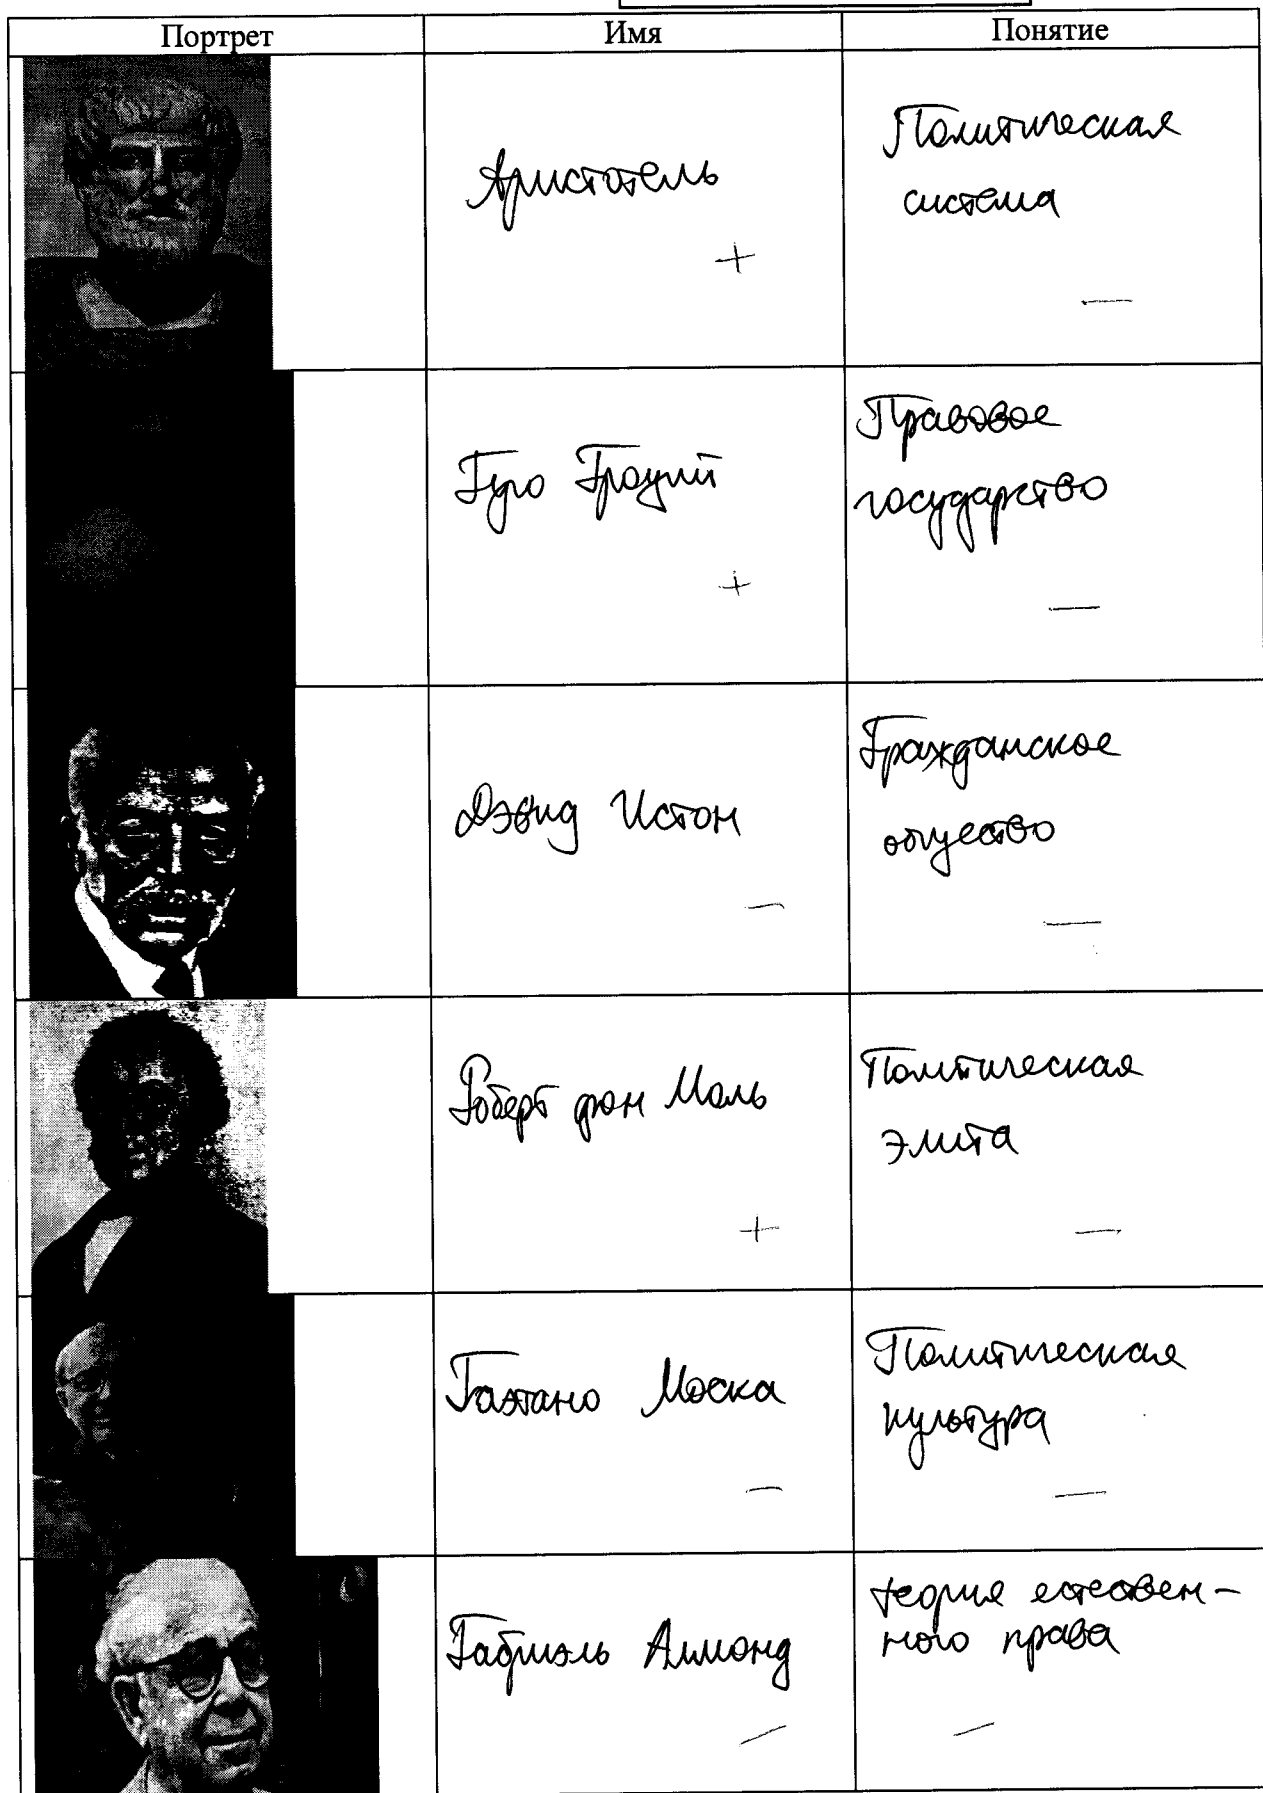 Портрет Имя Понятие
Аристотель
+
Политическая
система
—
Гуго Гроций
+
Правовое
государство
—
Дэвид Истон
—
Гражданское
общество
—
Роберт фон Моль
+
Политическая
элита
—
Гаэтано Моска
—
Политическая
культура
—
Габриэль Алмонд
—
теория естествен-
ного права
—